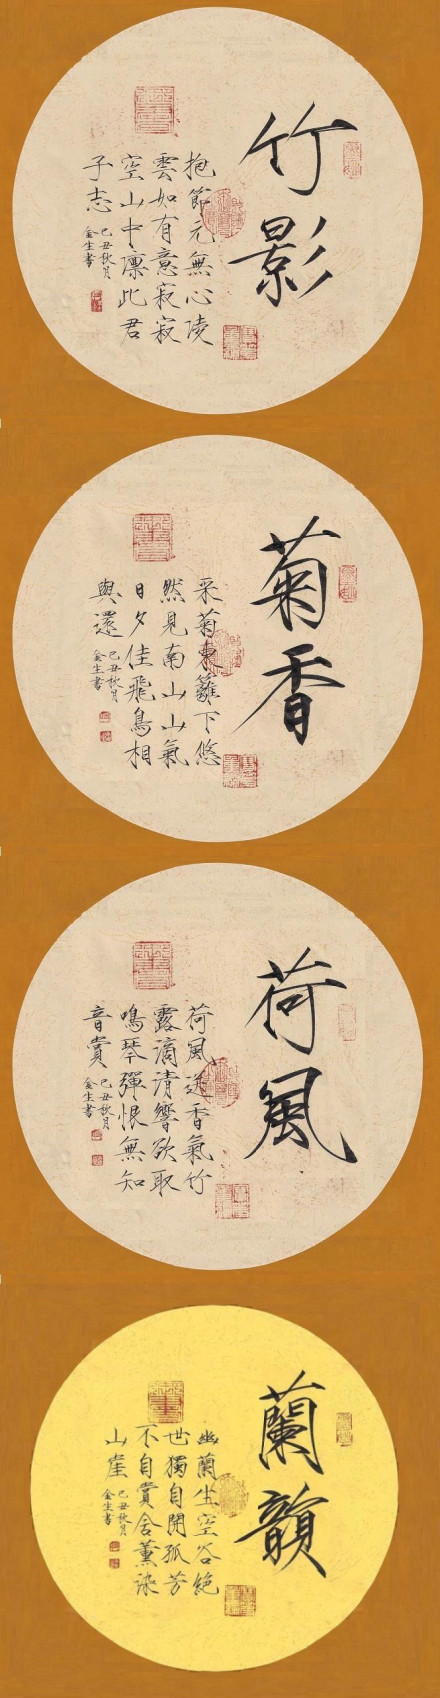 竹影
抱節元無心凌
雲如有意寂寂
空山中凛此君
子志
己丑秋月
金生書
菊香
采菊東籬下悠
然見南山山氣
日夕佳飛鳥相
與還
己丑秋月
金生書
荷風
荷風送香氣竹
露滴清響欲取
鳴琴彈恨無知
音賞
己丑秋月
金生書
蘭韻
幽蘭生空谷絕
世獨自開孤芳
不自賞含薰染
山崖
己丑秋月
金生書